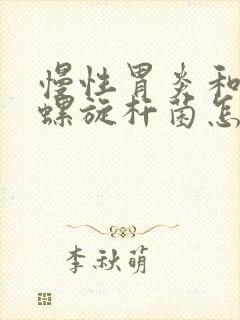 慢性胃炎和
螺旋杆菌怎
李秋萌